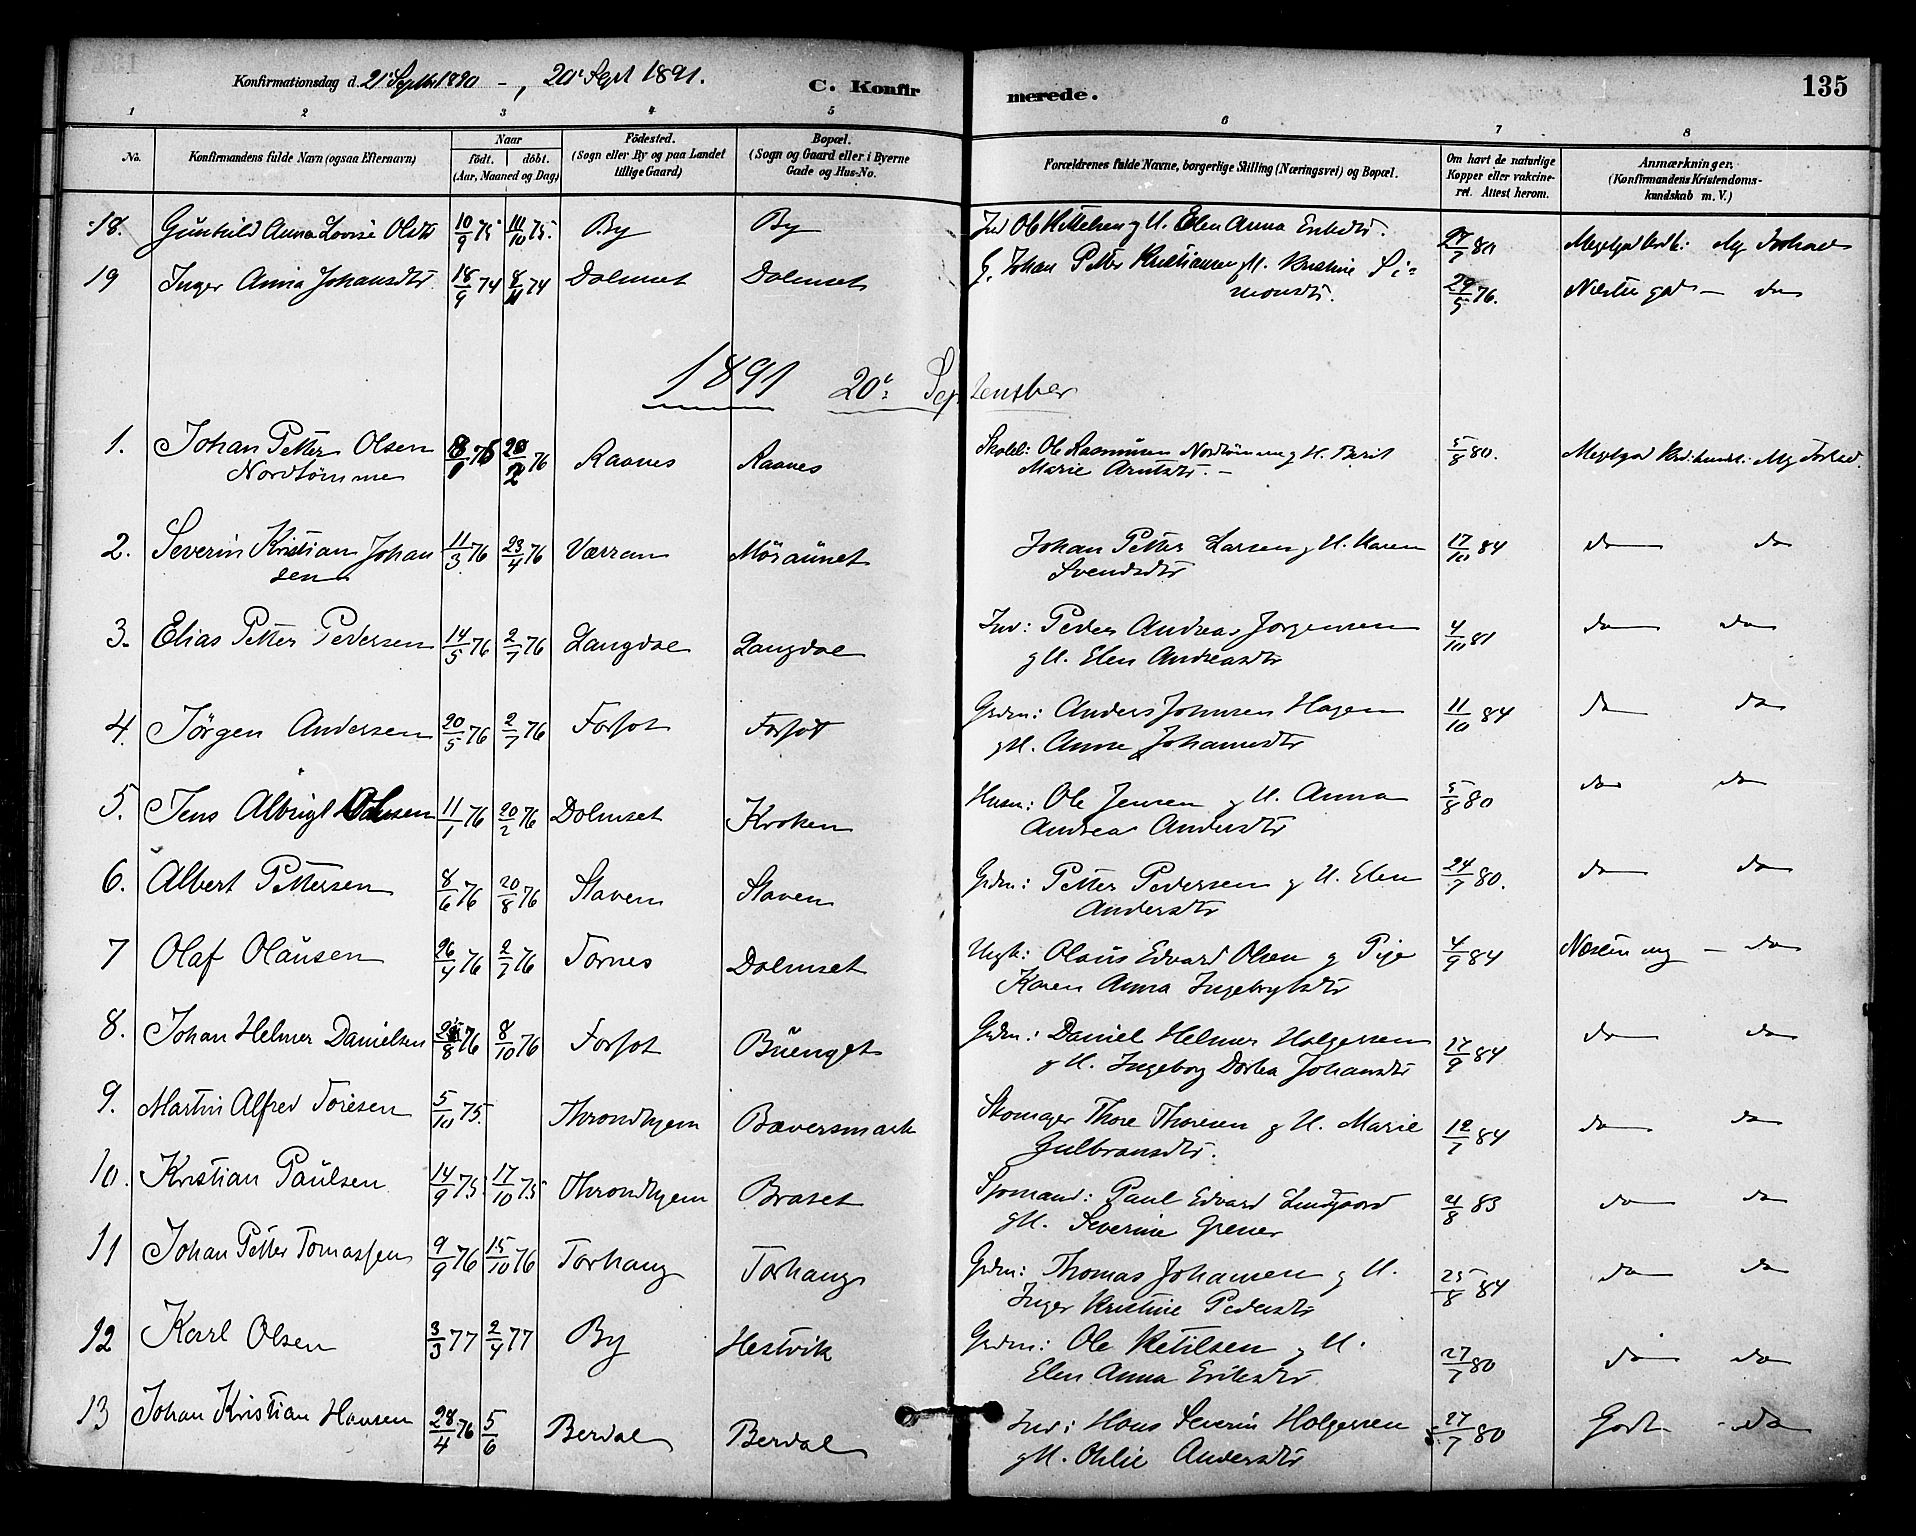 Konfirmationsdag d. 21 Septbr 1890 -, 20de Sept 1891.
C. Konfirmerede.
135
1 2 3 4 5 6 7 8
No. Konfirmandens fulde Navn (ogsaa Efternavn) Naar født. døbt. (Aar, Maaned og Dag) Födested. (Sogn eller By og paa Landet tillige Gaard) Bopæl. (Sogn og Gaard eller i Byerne Gade og Hus-No. Forældrenes fulde Navne, borgerlige Stilling (Næringsvei) og Bopæl. Om havt de naturlige Kopper eller vakcineret. Attest herom. Anmærkninger. (Konfirmandens Kristendomskundskab m. V.)
18. Gunhild Anna Lovise Olsdtr 10/9 75 10/10 75. By By Ind Ole Kittelsen g H. Elen Anna Eriksdtr. 27/7 80 Megetgod
19 Inger Anna Johansdtr 18/9 74 8/11 74 Dolmset Dolmset G. Johan Petter Kristiansen g H. Kristine Si-
monsdtr. 29/5 76. Næsten god - do
1891 20de September
1. Johan Petter Olsen 76 20/2 76 Raanes Raanes Skolel: Ole Rasmussen Nordtømmen g H. Berit 5/8 80. Megetgod
Nordtømme Marie Arntsdtr. -
2. Severin Kristian Johan 11/3 76 23/4 76 Værran Mösaunet Johan Petter Larsen g H. Karen 17/10 84 do do
sen Svendsdtr
3. Elias Petter Pedersen 14/5 76 2/7 76 Langdal Langdal Ind: Peder Andreas Jørgensen 4/10 81 do do
g H. Elen Andreasdtr
4. Jörgen Andersen 20/5 76 2/7 76 Forsot Forsot Grdm: Anders Johnsen Hagen 11/10 84 do do
g H. Anne Johannesdtr
5. Jens Albrigt Olsen 11/1 76 20/2 76 Dolmset Kroken Husm: Ole Jensen g H. Anna 5/8 80 do do
Andrea Andersdtr
6. Albert Pettersen 8/6 76 20/8 76 Staven Staven Grdm: Petter Pedersen g H. Elen 24/7 80. do do
Andersdtr
7 Olaf Olausen 26/4 76 2/7 76 Tornes Dolmset Ungk: Olaus Edvard Olsen g Pige 4/9 84 Næsten mg - do
Karen Anna Ingebrigtsdtr
8. Johan Helmer Danielsen 8 76 8/10 76 Forsot Buenget Grdm: Daniel Helmer Holgersen 17/9 84 do do
g H. Ingeborg Dortea Johansdtr
9. Martin Alfred Toresen 5/10 75. Throndhjem Bæversmark Skomager Thore Thoresen g H. Marie 12/7 84 do do
Gulbransdtr.
10. Kristian Paulsen 14/9 75 17/10 75 Throndhjem Braset Sjømand: Paul Edvard Lundgaard 21/8 83 do do
g H. Severine Grener
11 Johan Petter Tomassen 9/9 76 15/10 76 Torhaug Torhaug Grdm: Thomas Johansen g H. 25/8 84 do do
Inger Kristine Pedersdtr
12 Karl Olsen 3/3 77 2/4 77 By Hestvik Grdm: Ole Ketilsen g H. 27/7 80 do do
Elen Anna Eriksdtr.
13 Johan Kristian Hansen 28/4 76 5/6 Berdal Berdal Ind: Hans Severin Holgersen 27/7 80 Godt - do
g H. Ohlie Andersdtr